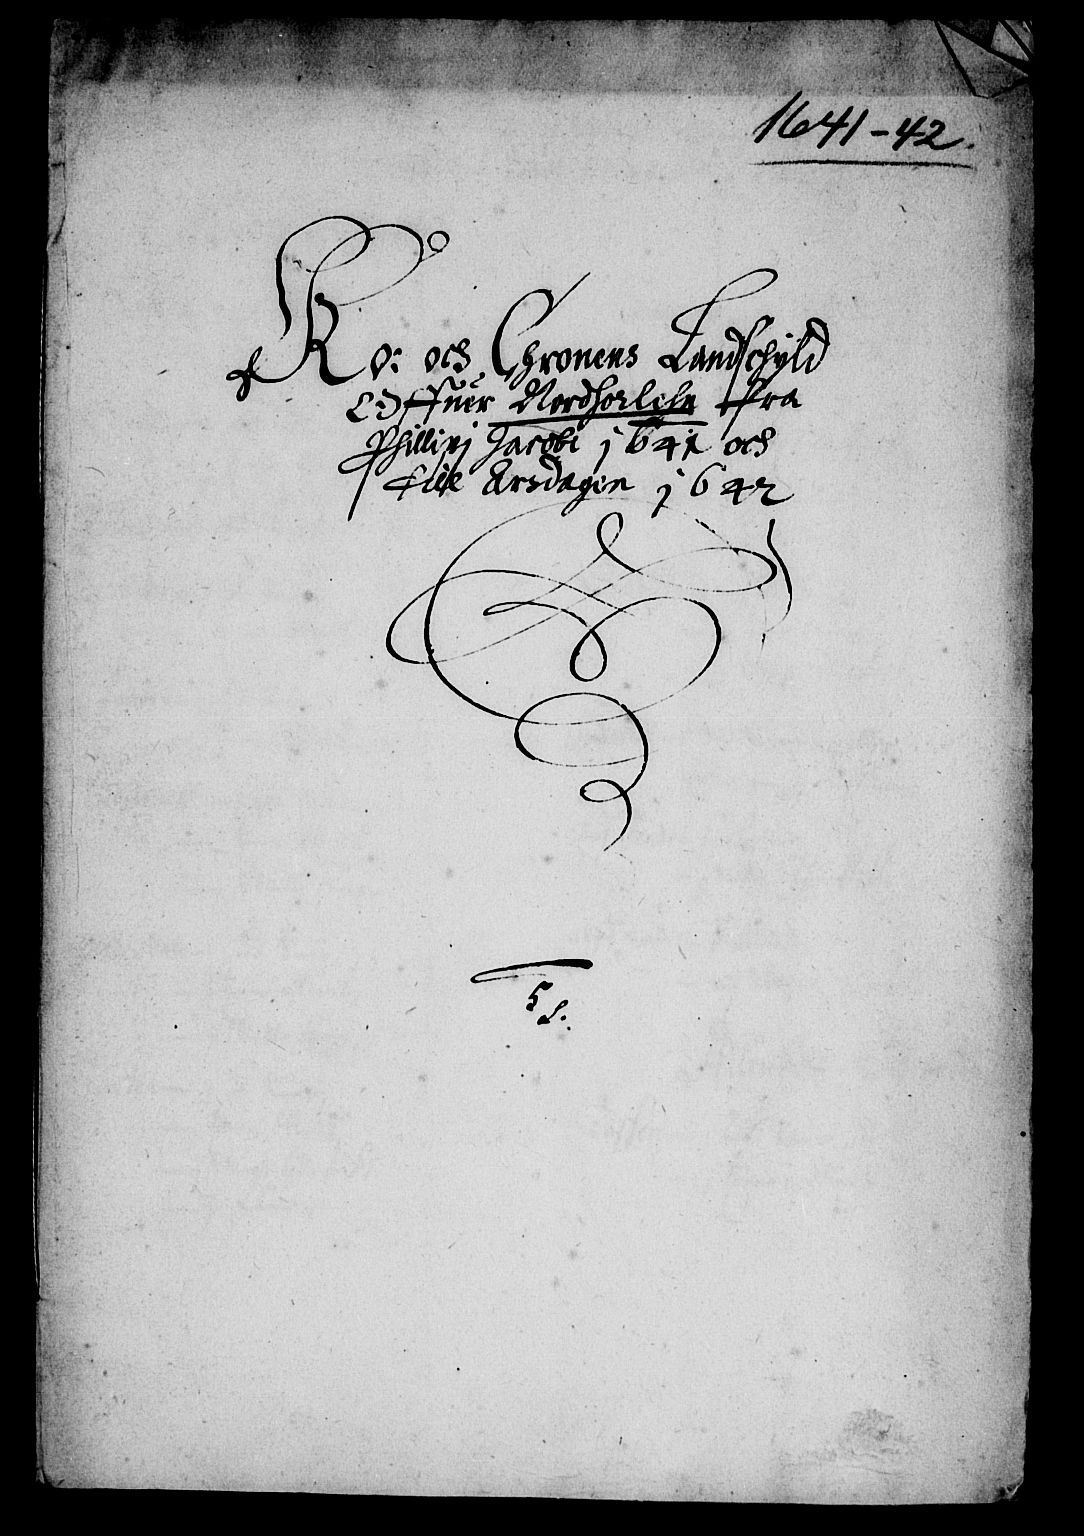 1641-42.
Ko: och Chronens Landschyld
Offuer Nordhorlehn Fra
Phillipj Jacobi j641 och
till Arsdagen j642
5
L.